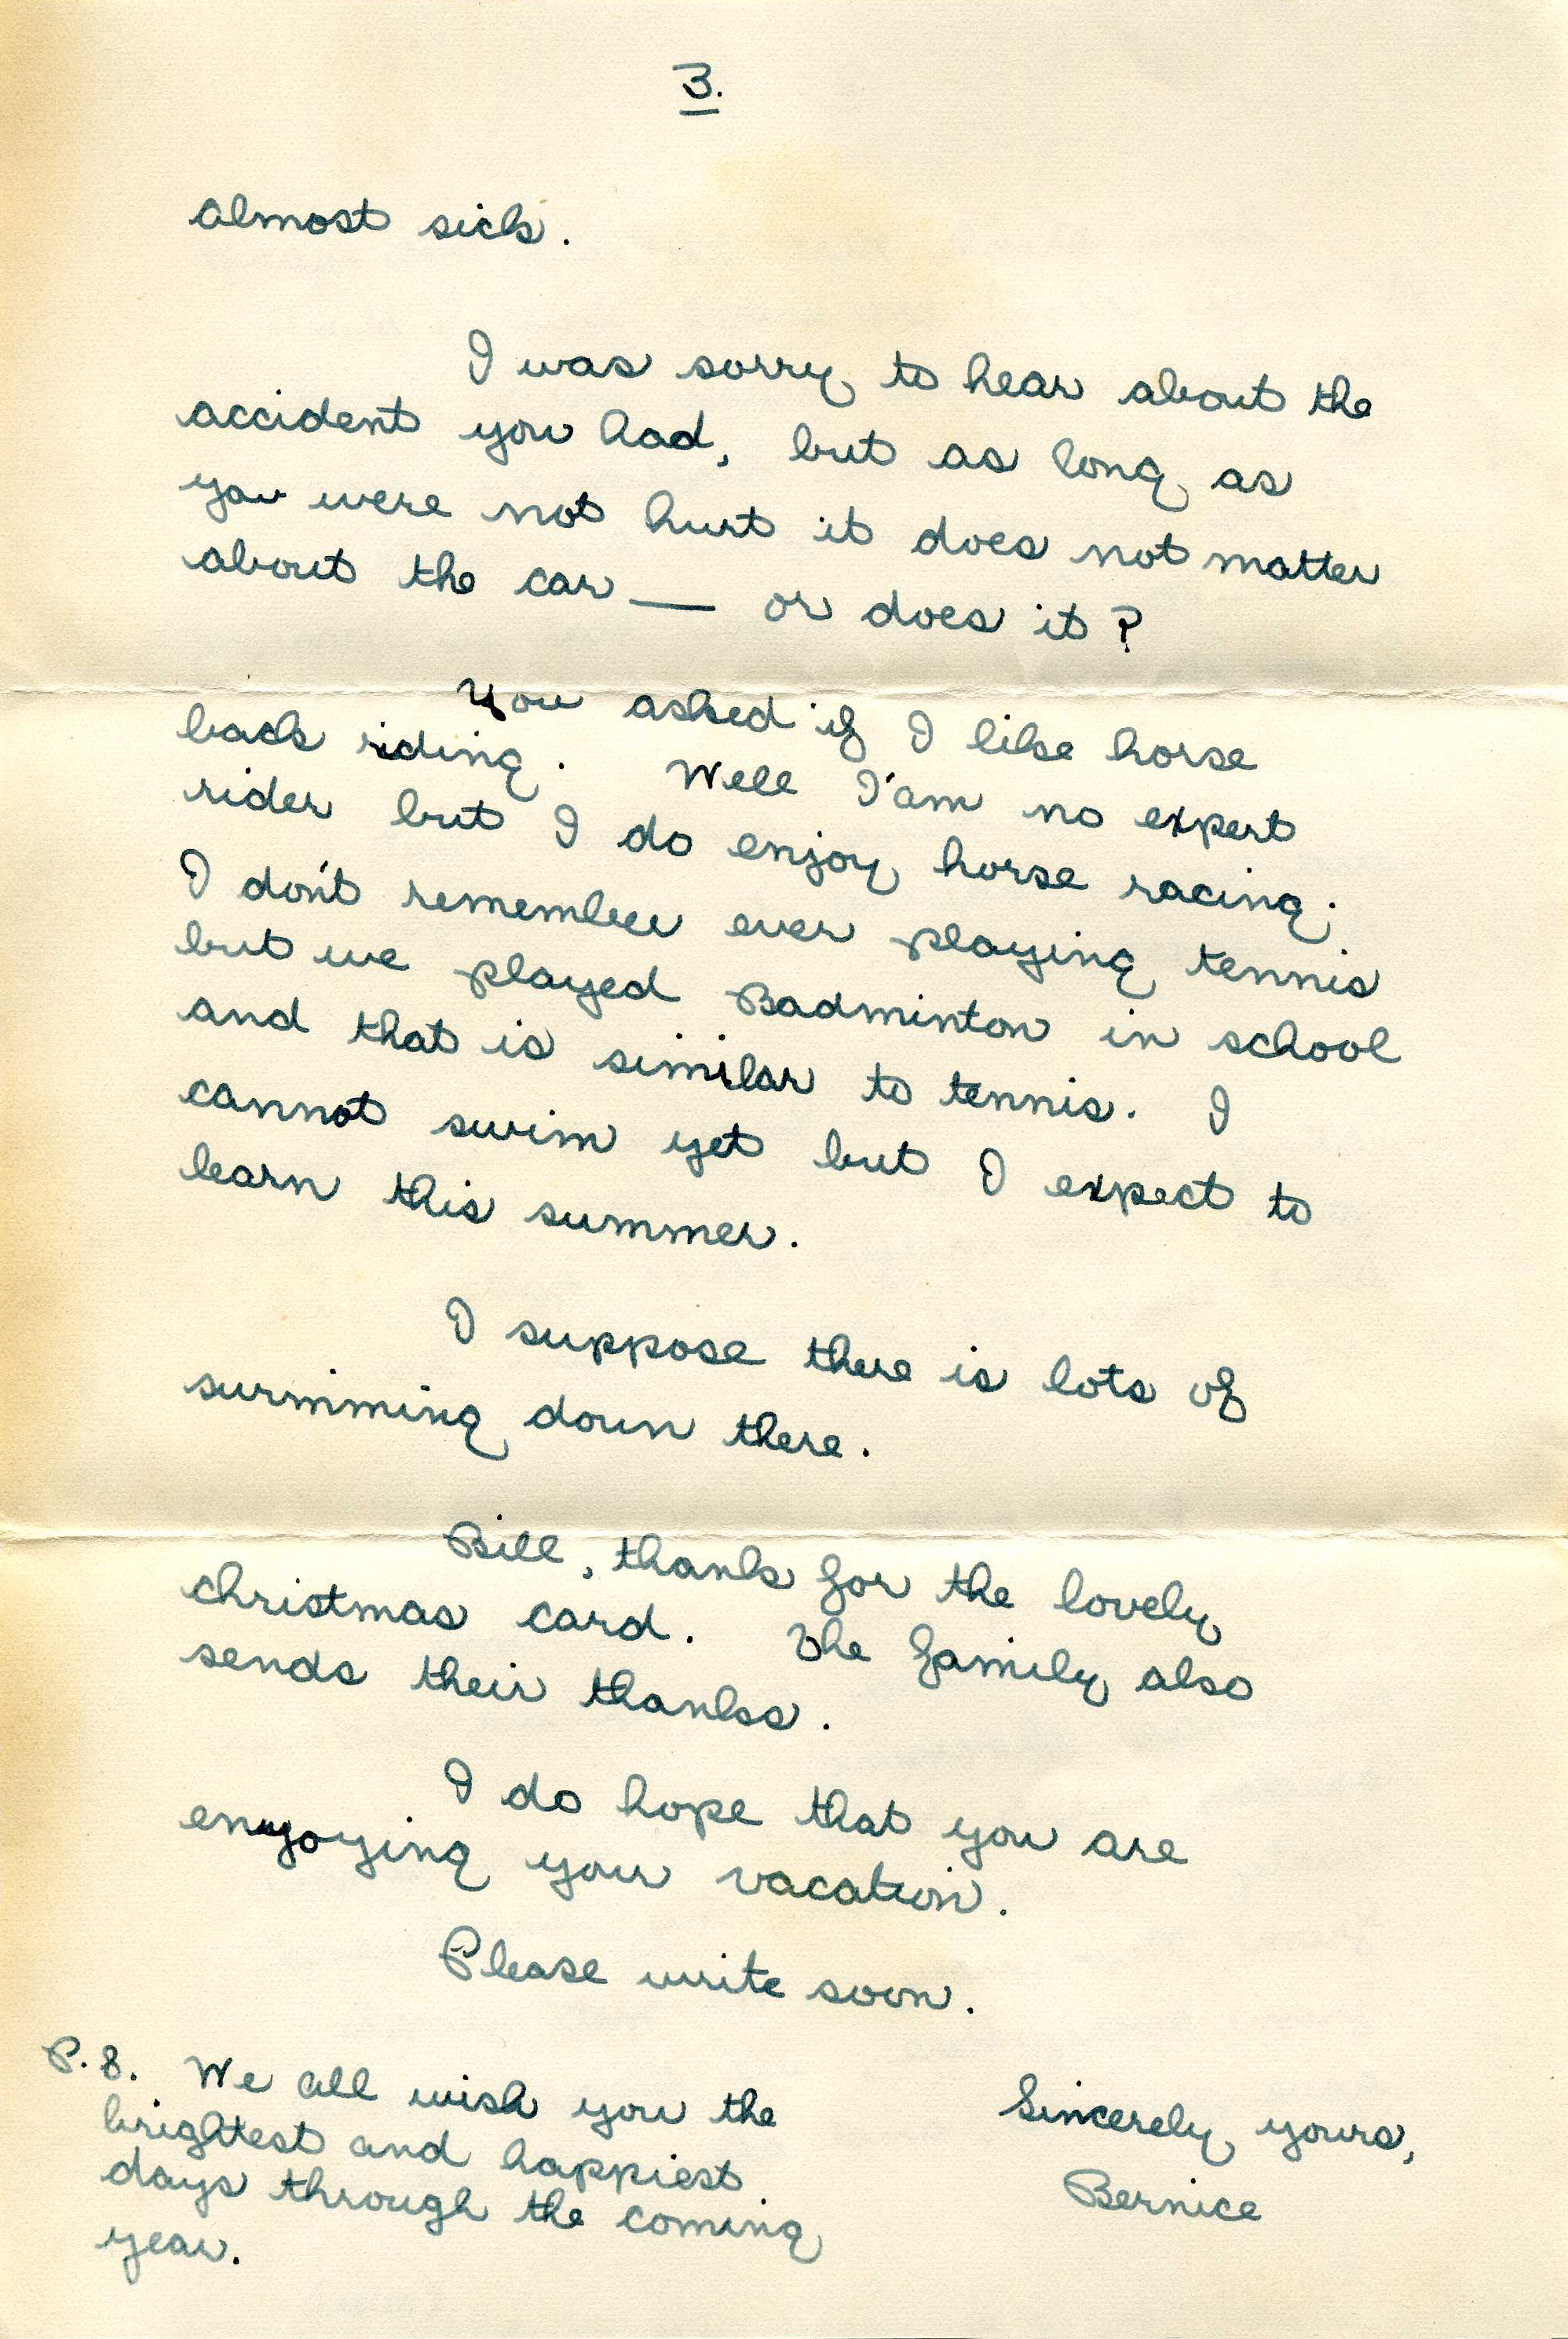 3.
almost sick.
I was sorry to hear about the
accident you had, but as long as
you were not hurt it does not matter
about the car — or does it?
You asked if I like horse
back riding. Well I'am no expert
rider but I do enjoy horse racing.
I don't remember ever playing tennis
but we played Badminton in school
and that is similar to tennis. I
cannot swim yet but I expect to
learn this summer.
I suppose there is lots of
swimming down there.
Bill, thanks for the lovely
christmas card. The family also
sends their thanks.
I do hope that you are
enjoying your vacation.
Please write soon.
Sincerely yours,
Bernice
P.S. We all wish you the
brightest and happiest
days through the coming
year.